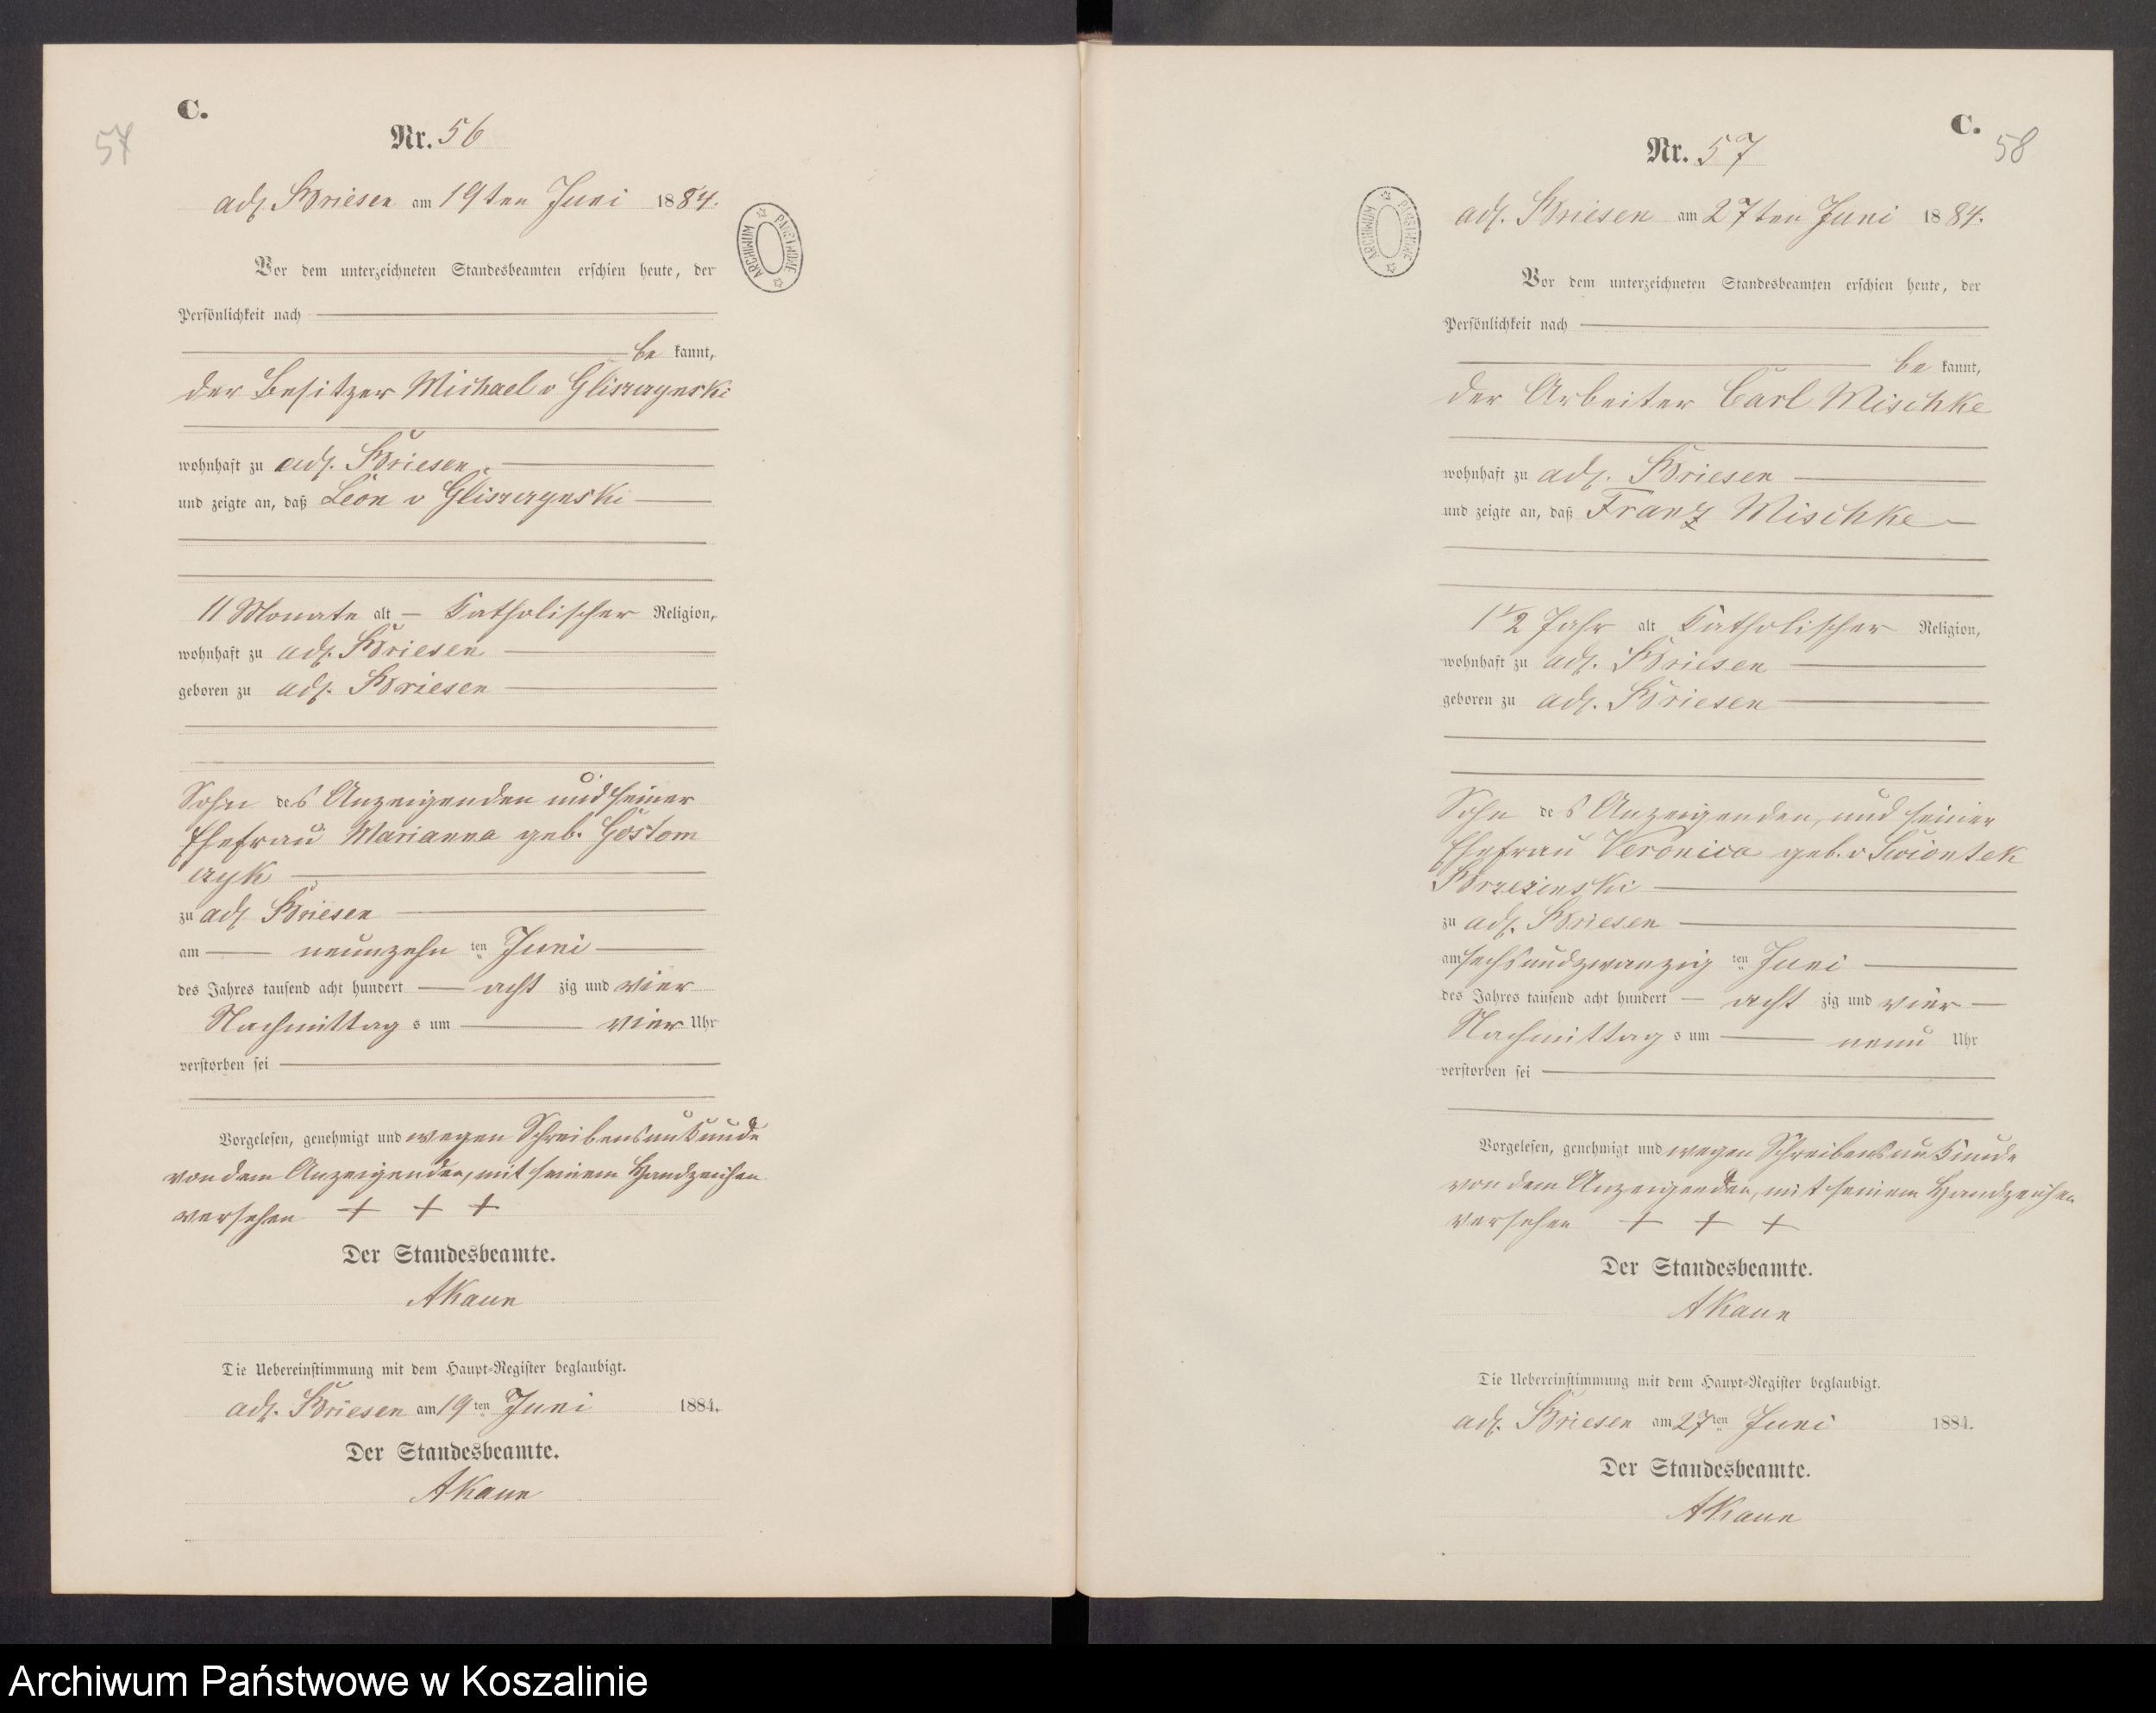 C.
57
Nr. 56
adl. Briesen am 19ten Juni 1884.
ARCHIWUM PAŃSTWOWE
Vor dem unterzeichneten Standesbeamten erschien heute, der
Persönlichkeit nach
be kannt,
der Besitzer Michael v Gliszczynski
wohnhaft zu adl. Briesen
und zeigte an, daß Leon v Gliszczynski
11 Monate alt — Katholischer Religion,
wohnhaft zu adl. Briesen
geboren zu adl. Briesen
Sohn des Anzeigenden und seiner
Ehefrau Marianna geb. Gostom
czyk
zu adl Briesen
am — neunzehn ten Juni
des Jahres tausend acht hundert — acht zig und vier
Nachmittag s um — vier Uhr
verstorben sei
Vorgelesen, genehmigt und wegen Schreibensunkunde
von dem Anzeigenden, mit seinem Handzeichen
versehen + + +
Der Standesbeamte.
AKaun
Die Uebereinstimmung mit dem Haupt-Register beglaubigt.
adl. Briesen am 19ten Juni 1884.
Der Standesbeamte.
AKaun
C.
58
Nr. 57
adl. Briesen am 27ten Juni 1884.
ARCHIWUM PAŃSTWOWE
Vor dem unterzeichneten Standesbeamten erschien heute, der
Persönlichkeit nach
be kannt,
der Arbeiter Carl Mischke
wohnhaft zu adl. Briesen
und zeigte an, daß Franz Mischke
1 1/2 Jahr alt Katholischer Religion,
wohnhaft zu adl. Briesen
geboren zu adl. Briesen
Sohn des Anzeigenden, und seiner
Ehefrau Veronica geb. v Swiontek
Brzezinski
zu adl. Briesen
am sechsundzwanzig ten Juni
des Jahres tausend acht hundert — acht zig und vier —
Nachmittag s um — neun Uhr
verstorben sei
Vorgelesen, genehmigt und wegen Schreibensunkunde
von dem Anzeigenden, mit seinem Handzeichen
versehen + + +
Der Standesbeamte.
AKaun
Die Uebereinstimmung mit dem Haupt-Register beglaubigt.
adl. Briesen am 27ten Juni 1884.
Der Standesbeamte.
AKaun
Archiwum Państwowe w Koszalinie